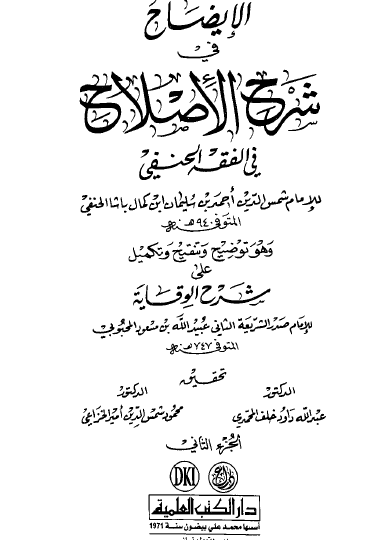 الإيضاح
في
شرح الأصلاح
في الفقه الحنفي
للإمام شمس الدين أحمد بن سليمان ابن كمال باشا الحنفي
المتوفى ٩٤٠ هـ
وهو توضيح وتنقيح وتكميل
على
شرح الوقاية
للإمام صدر الشريعة الثاني عبيد الله بن مسعود المحبوبي
المتوفى ٧٤٧ هـ
تحقيق
الدكتور الدكتور
عبد الله داود خلف المحمدي محمود شمس الدين أمير الخزاعي
الجزء الثاني
DKI
دار الكتب العلمية
أسسها محمد علي بيضون سنة 1971